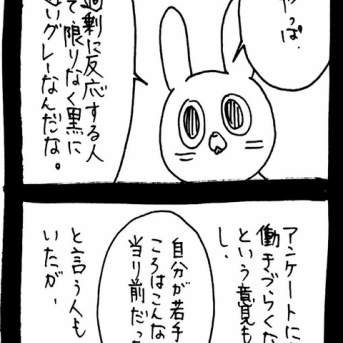 やっぱ、
過剰に反応する人
て限りなく黒に
近いグレーなんだな。
アンケートに
働きづらくな
という意見も
し、
自分が若手
ころはこんな
当り前だっ
と言う人も
いたが、